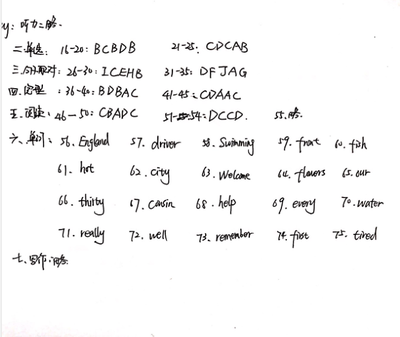 key: 听力: 略.
二.单选: 16-20: BCBDB 21-25: CDCAB
三.问答配对: 26-30: ICEHB 31-35: DFJAG
四.完型: 36-40: BDBAC 41-45: CDAAC
五.阅读: 46-50: CBADC 51-54: DCCD. 55.略.
六.单词: 56. England 57. driver 58. Swimming 59. front 60. fish
61. hot 62. city 63. Welcome 64. flowers 65. our
66. thirty 67. Cousin 68. help 69. every 70. water
71. really 72. well 73. remember 74. first 75. tired
七.写作:略